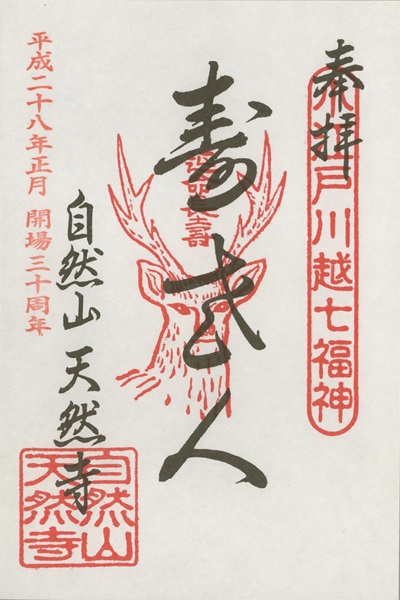 奉拝
小江戸川越七福神
寿老人
延命長壽
自然山 天然寺
平成二十八年正月 開場三十周年
自然山
天然寺